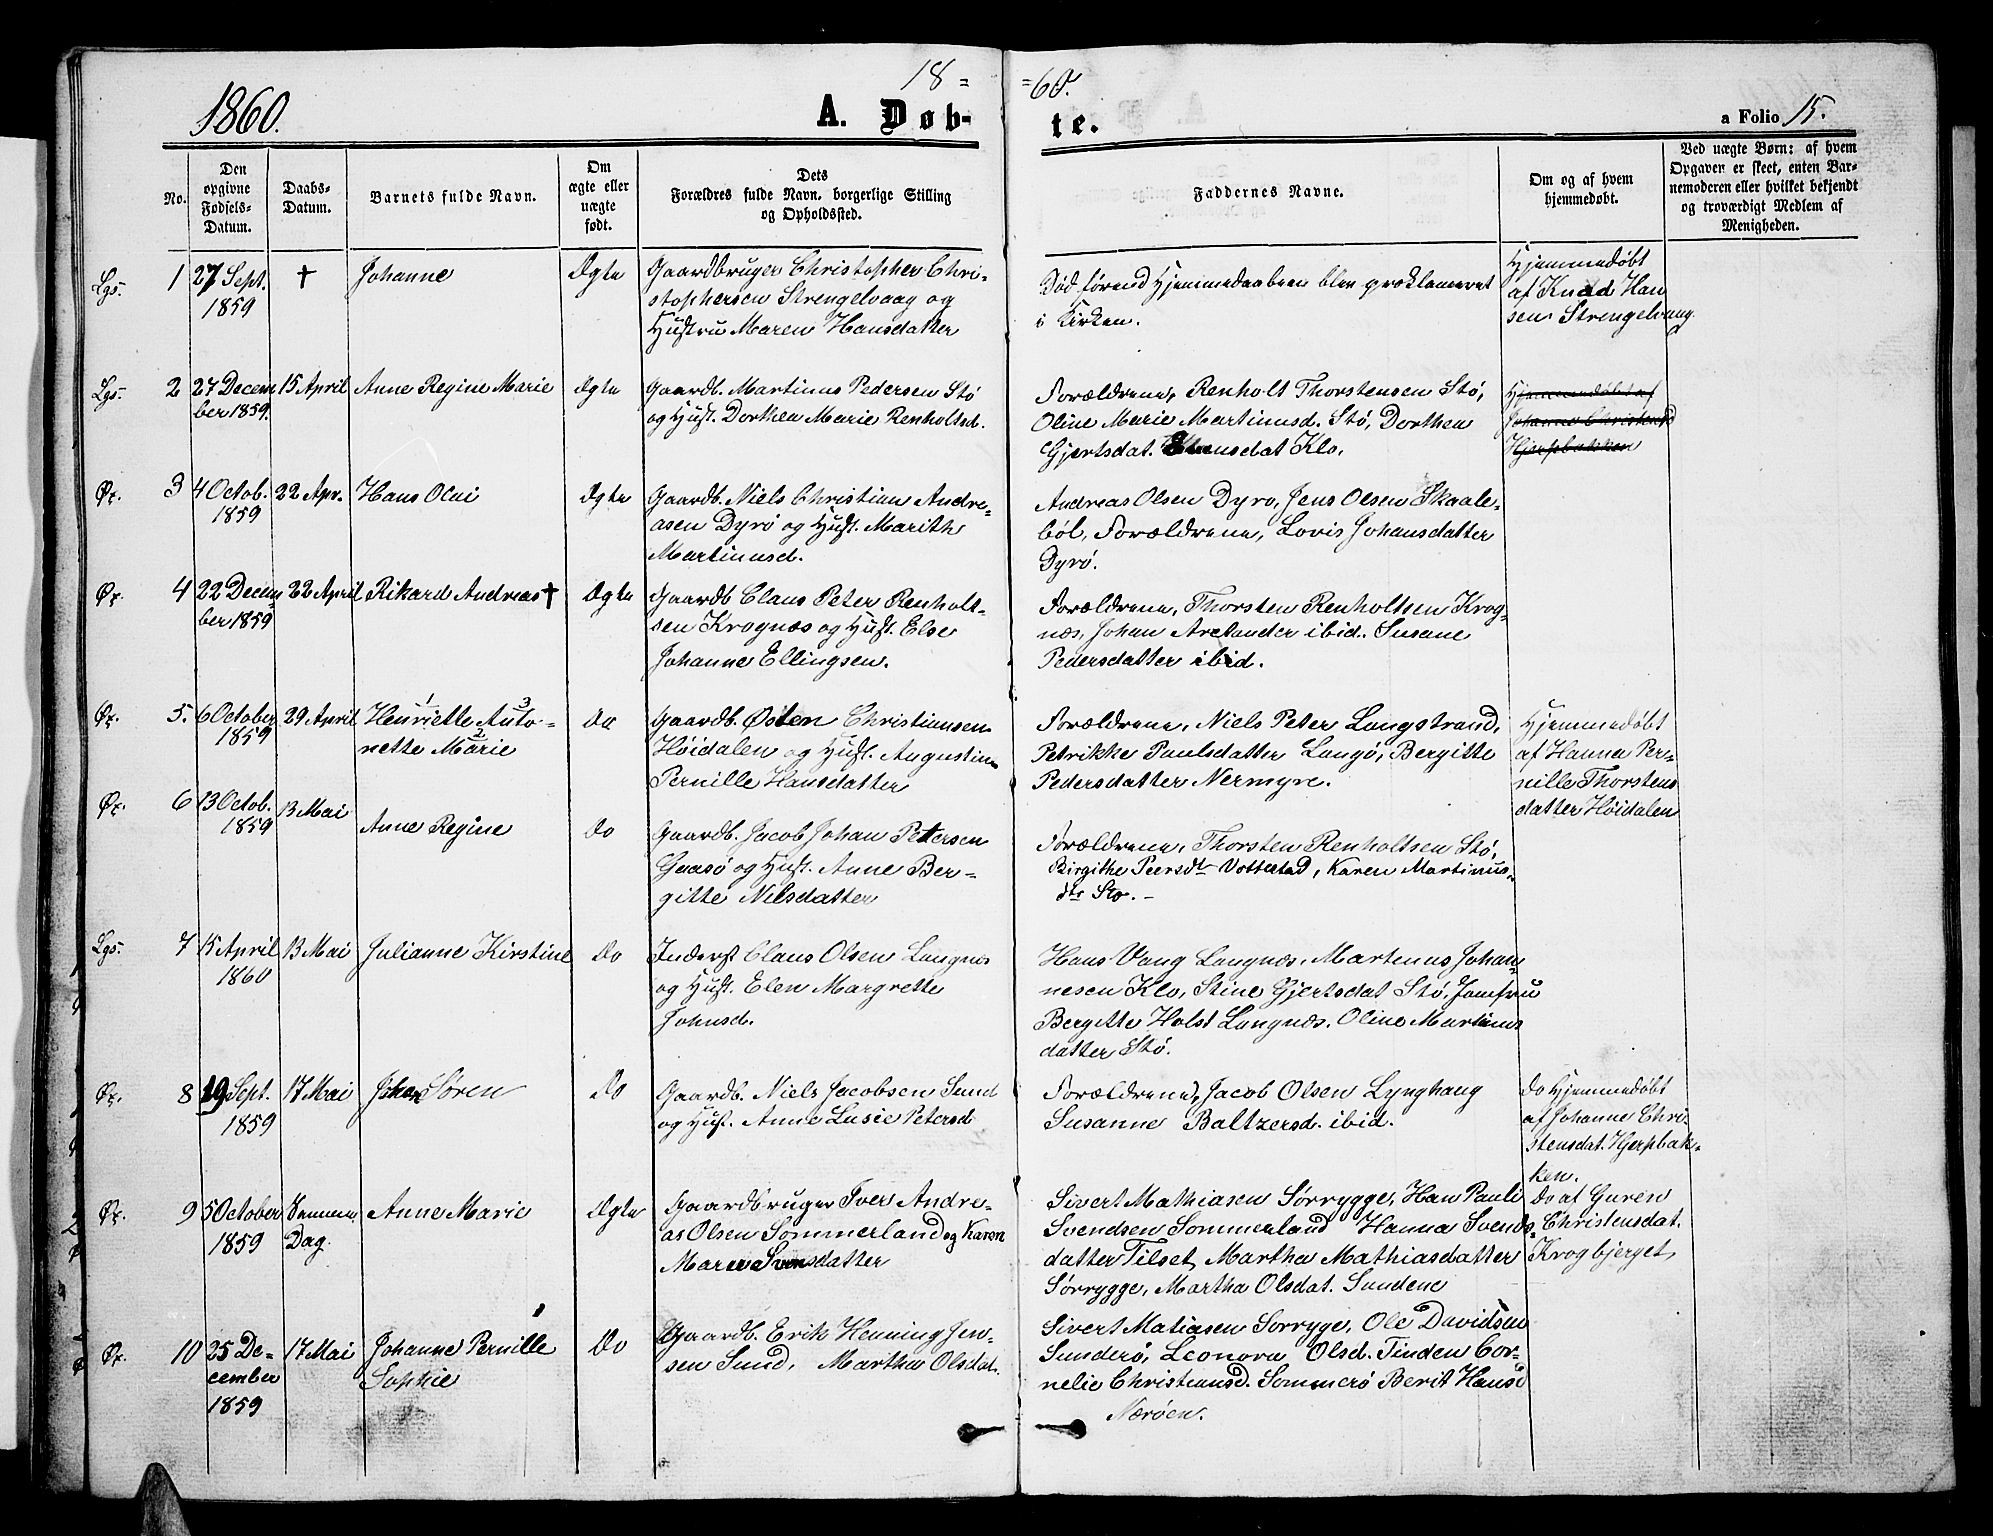 18=
=60.
1860.
A. Døb-
te.
a Folio 15.
No.
Den
opgivne
Fødsels-
Datum.
Daabs-
Datum.
Barnets fulde Navn.
Om
ægte eller
uægte
født.
Dets
Forældres fulde Navn, borgerlige Stilling
og Opholdssted.
Faddernes Navne.
Om og af hvem
hjemmedøbt.
Ved uægte Børn: af hvem
Opgaven er skeet, enten Bar-
nemoderen eller hvilket bekjendt
og troværdigt Medlem af
Menigheden.
Lgs.
1
27 Sept.
1859
†
Johanne
Ægte
Gaardbruger Christopher Chri-
stophersen Strengelvaag og
Hustru Maren Hansdatter
Død førend Hjemmedaaben blev proklameret
i Kirken.
Hjemmedøbt
af Knud Han
sen Strengelvaag
Lgs.
2
27 Decem
ber 1859.
15 April
Anne Regine Marie
Ægte
Gaardb. Martinus Pedersen Stø
og Hust. Dorthea Marie Renholtsd.
Forældrene, Renholt Thorstensen Stø,
Oline Marie Martinusd. Stø, Dorthea
Gjertsdat. Klo.
Hjemmedøbt af
Johanne Christensd
Hjerpbakken
Øx.
3
4 Octob.
1859
22 Apr.
Hans Olai
Ægte
Gaardb. Niels Christian Andre-
asen Dyrø og Hust. Marith
Martinusd.
Andreas Olsen Dyrø, Jens Olsen Skaale-
bøl, Forældrene, Lovis Johansdatter
Dyrø.
Øx.
4
22 Decem
ber 1859
22 April
Rikard Andreas †
Ægte
Gaardb Claus Peter Renholt-
sen Krognæs og Hust. Else
Johanne Ellingsen.
Forældrene, Thorsten Renholtsen Krog-
næs, Johan Arctander ibid. Susane
Pedersdatter ibid.
Øx.
5.
6 October
1859
29 April
1 3
Henriette Anto-
2
nette Marie
do
Gaardb. Østen Christiansen
Høidalen og Hust. Augustine
Pernille Hansdatter
Forældrene, Niels Peter Langstrand,
Petrikke Paulsdatter Langø, Bergitte
Pedersdatter Nermyre.
Hjemmedøbt
af Hanna Per-
nille Thorstens
datter Høidalen
Øx.
6
13 Octob.
1859
13 Mai
Anne Regine
do
Gaardb. Jacob Johan Petersen
Gaasø og Hust. Anne Ber-
gitte Nilsdatter
Forældrene, Thorsten Renholtsen Stø,
Birgithe Peersdtr Vottestad, Karen Martinus-
dtr Sto. -
Lgs.
7
15 April
1860
13 Mai
Julianne Kirstine
Do
Inderst Claus Olsen Langnæs
og Hust. Elen Margrette
Johnsd.
Hans Vang Langnæs, Martinus Johan-
nesen Klo, Stine Gjertsdat Stø, Jomfru
Bergitte Holst Langnæs. Oline Martinus
datter Stø.
Øx.
8
19 Sept.
1859
17 Mai
Johan Søren
Do
Gaardb. Niels Jacobsen Sund
og Hust. Anne Lusie Petersd
Forældrene, Jacob Olsen Lynghaug
Susanne Baltzersd. ibid.
Do Hjemmedøbt
af Johanne Chri-
stensdat. Hjerpbak-
ken.
Øx.
9
5 October
1859
Samme
Dag.
Anne Marie
Ægte
Gaardbruger Iver Andre-
as Olsen Sommerland og Karen
Marie Svensdatter
Sivert Mathiasen Sørrygge, Han Pauli
Svendsen Sommerland Hanna Svends-
datter Tilset, Martha Mathiasdatter
Sørrygge, Martha Olsdat. Sundene
Do af Guren
Christensdat.
Krogbjerget
Øx.
10
25 De-
cember
1859
17 Mai
Johanne Pernille
Sophie
Do
Gaardb. Erik Henning Jen-
sen Sund, Martha Olsdat.
Sivert Matiasen Sorryge, Ole Davidsen
Sunderø, Leonora Olsd. Tinden Cor-
nelie Christiansd. Sommerø Berit Hansd
Nærøen.